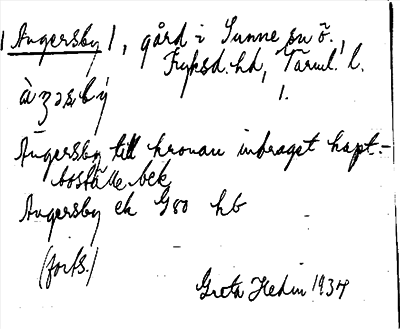 | Angersby |, gård i Sunne sn ö.,
Fryksd. hd, Värml. l.
àŋəṣbý 1.
Angersby till kronan indraget kapt.-
boställe bek
Angersby ek G80 hb
(forts.)
Greta Hedin 1934